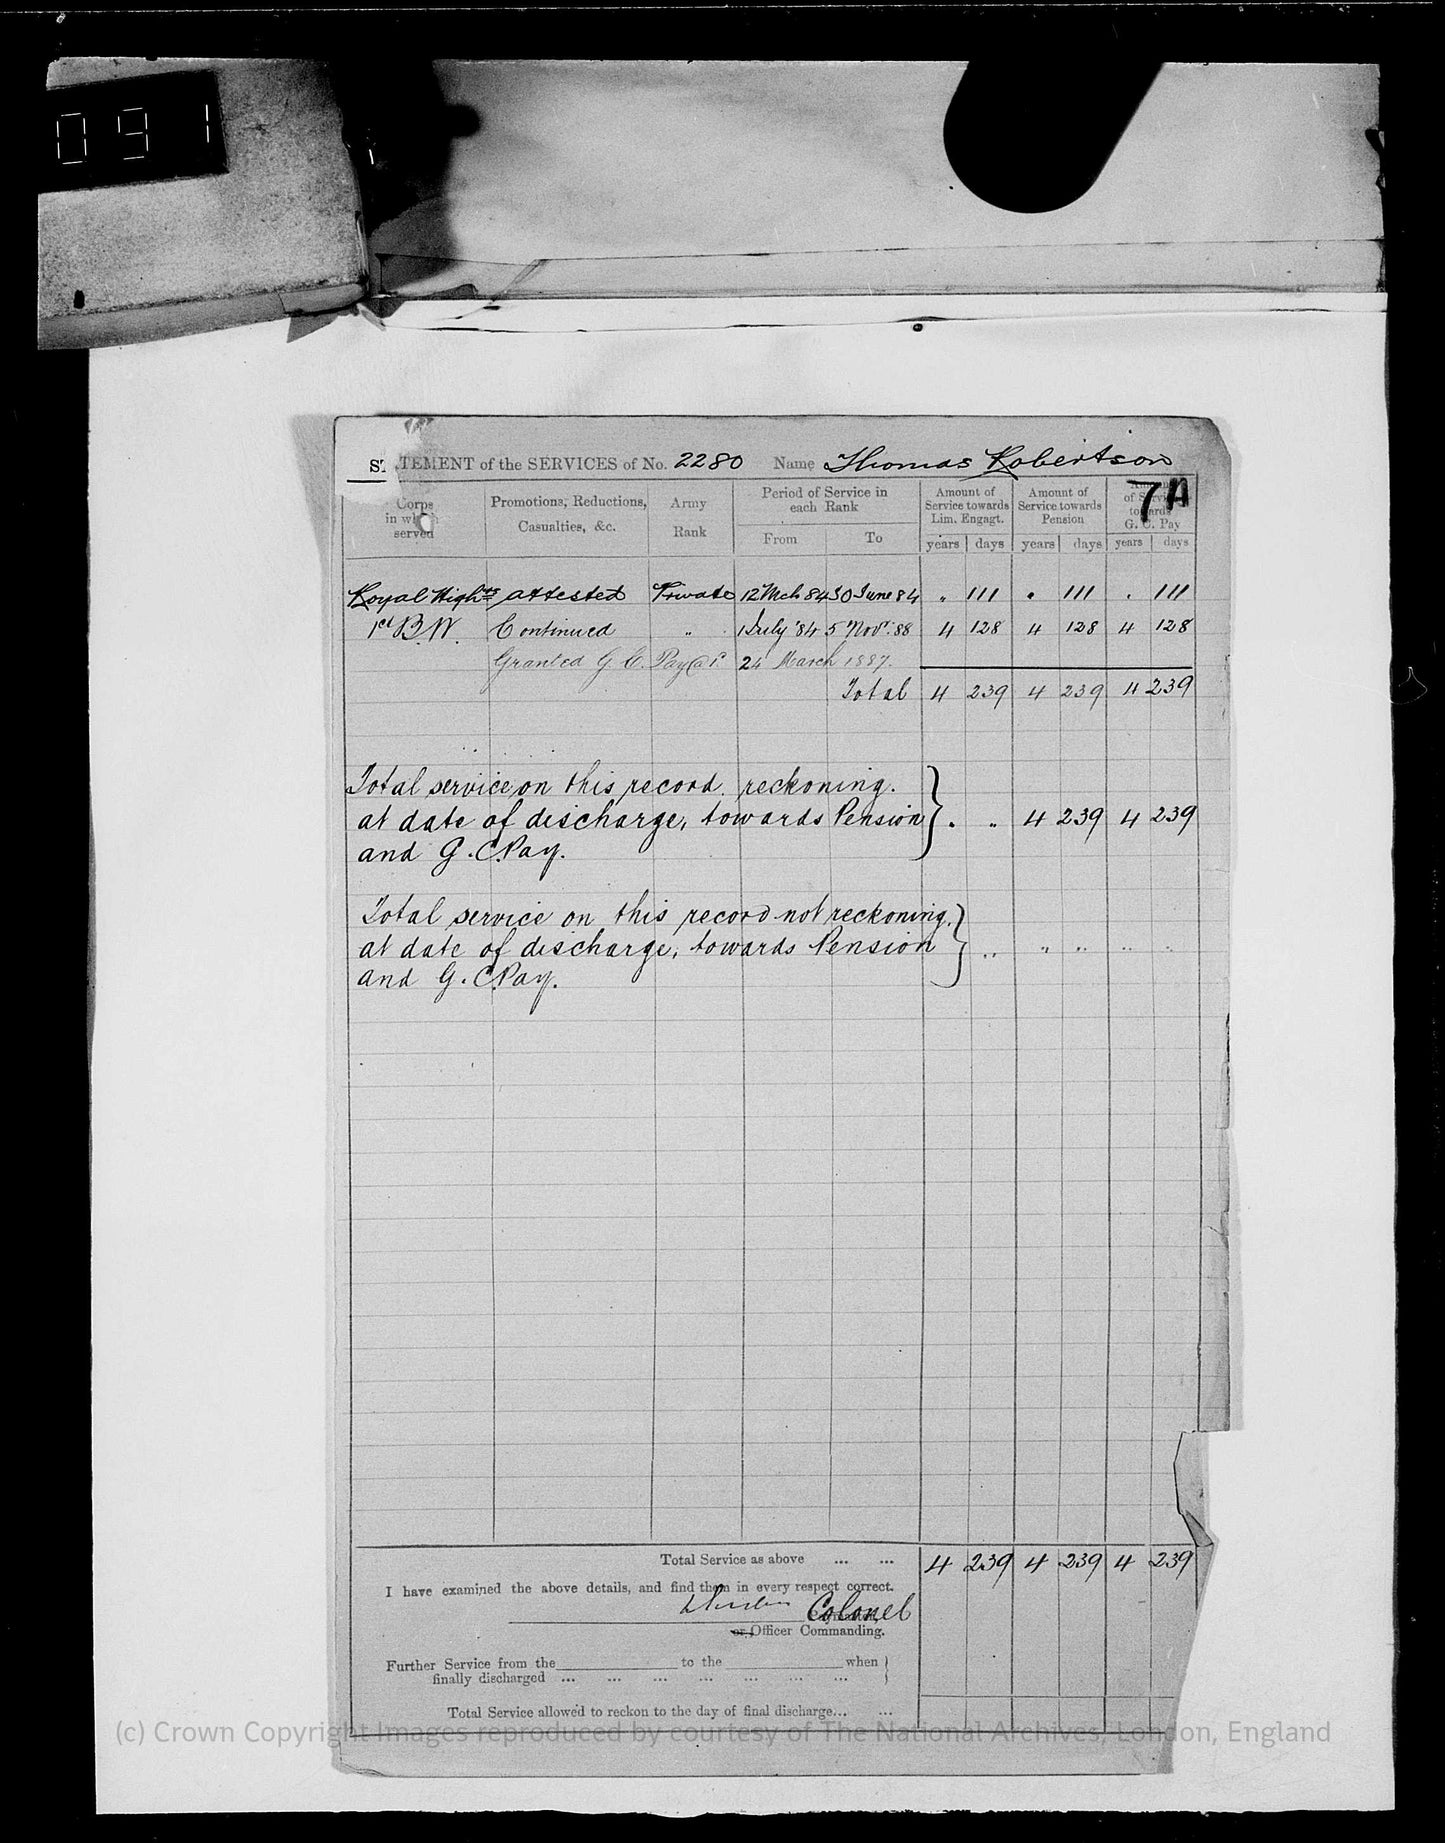 091
STATEMENT of the SERVICES of No. 2280 Name Thomas Robertson
7A
Corps in which served | Promotions, Reductions, Casualties, &c. | Army Rank | Period of Service in each Rank From To | Amount of Service towards Lim. Engagt. years days | Amount of Service towards Pension years days | Amount of Service towards G. C. Pay years days
Royal Highrs attested Private 12 Mch 84 30 June 84 " 111 " 111 " 111
1st B W. Continued " 1 July '84 5 Novr. 88 4 128 4 128 4 128
Granted G. C. Pay @ 1d 24 March 1887.
Total 4 239 4 239 4 239
Total service on this record reckoning.
at date of discharge, towards Pension } " " 4 239 4 239
and G. C. Pay.
Total service on this record not reckoning,
at date of discharge, towards Pension } " " " " "
and G. C. Pay.
Total Service as above ... ... 4 239 4 239 4 239
I have examined the above details, and find them in every respect correct.
Colonel
or Officer Commanding.
Further Service from the to the when }
finally discharged ... ... ... ... ... ... ... }
Total Service allowed to reckon to the day of final discharge... ...
(c) Crown Copyright Images reproduced by courtesy of The National Archives, London, England